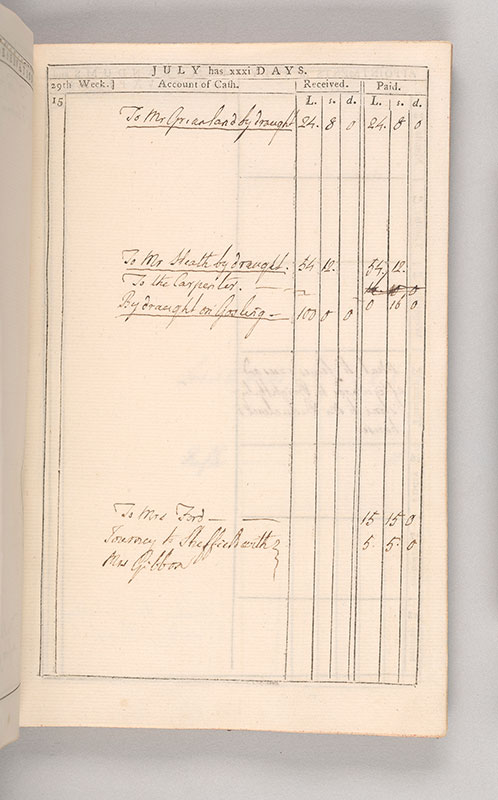 JULY has xxxi DAYS.
29th Week. Account of Cash. Received. Paid.
15 L. s. d. L. s. d.
To Mr Grianland by draught 24. 8 0 24. 8 0
To Mr Heath by draught. 54 12. 54, 12.
To the Carpenter. 0
By draught on Gosling 100 0 0 0 16 0
To Mrs Ford 15 15 0
Journey to Sheffield with 5. 5. 0
Mrs Gibbon